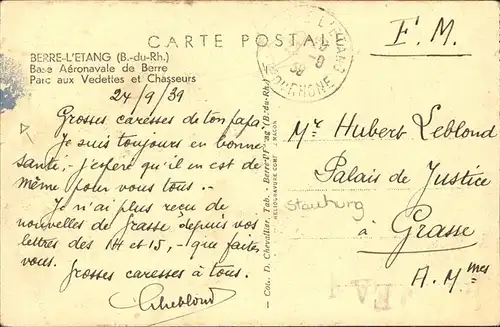 CARTE POSTALE
BERRE-L'ETANG (B.-du-Rh.)
Base Aéronavale de Berre
Parc aux Vedettes et Chasseurs
24/9/39
Grosses caresses de ton papa.
Je suis toujours en bonne
santé, j'espère qu'il en est de
même pour vous tous.-
Je n'ai plus reçu de
nouvelles de Grasse depuis vos
lettres des 14 et 15,- que faites
vous.
Grosses caresses à tous.
Leblond
Coll. D. Chevallier, Tab. - Berre-l'Etang (B.-du-Rh.)
HELIOGRAVURE COMBIER MACON
L'ETANG
RHONE
F. M.
Mr Hubert Leblond
Palais de Justice
à
Grasse
A. Mmes